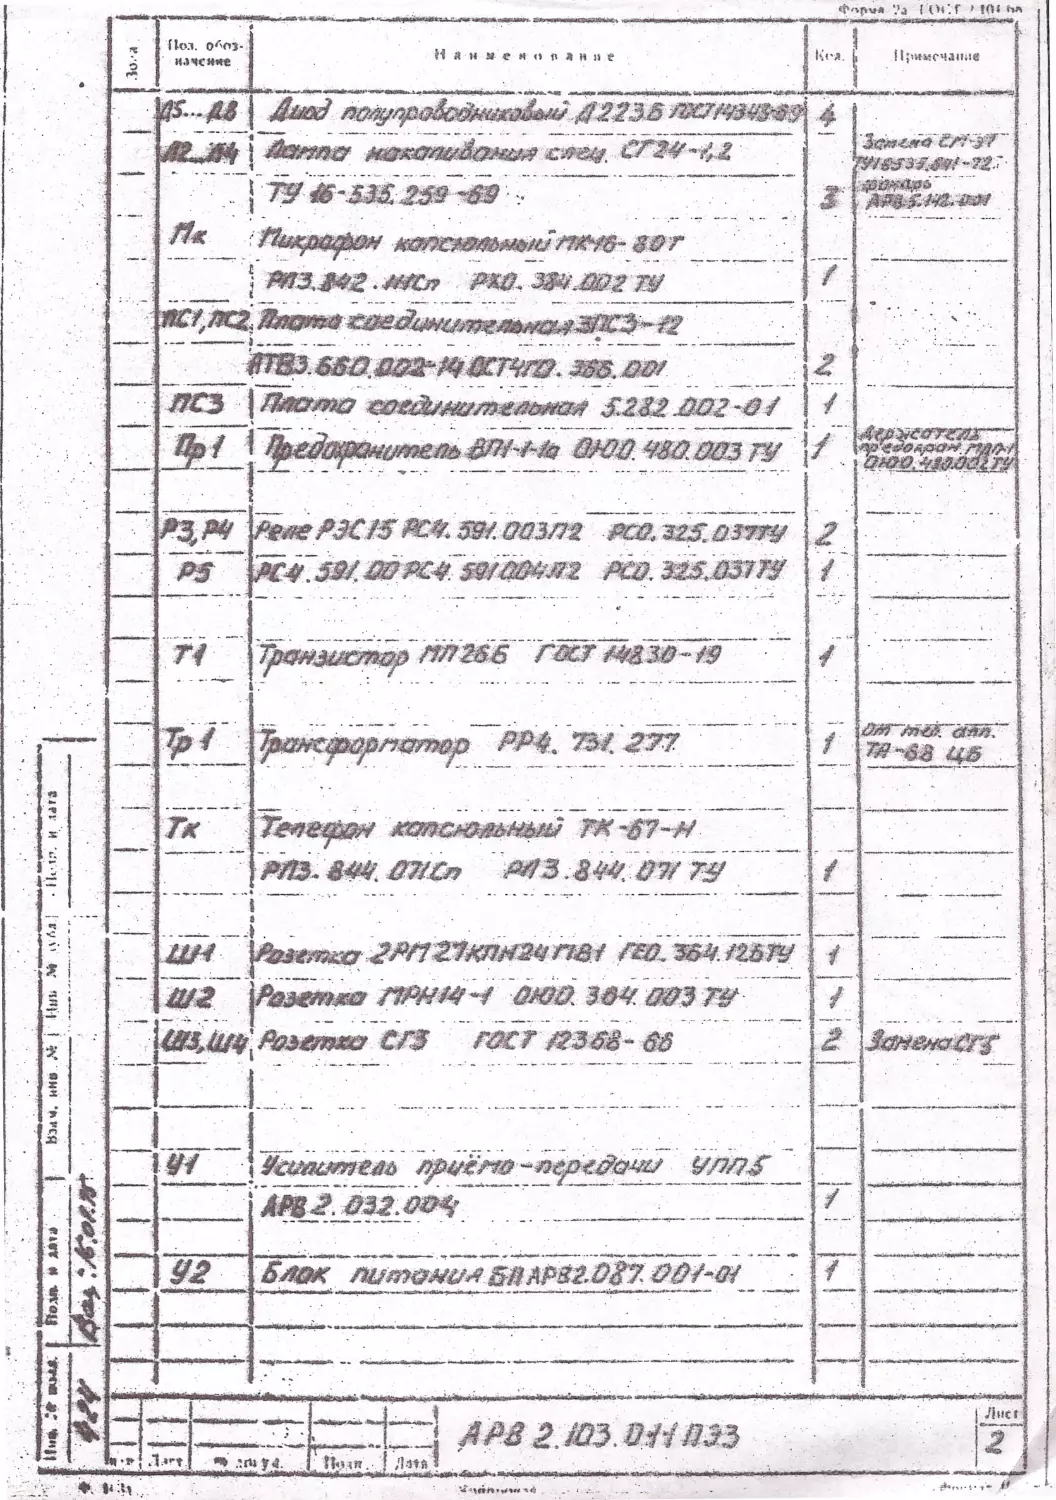 Форма 2а ГОСТ
Зона
Поз. обоз-
начение
Наименование
Кол.
Примечание
Д5...Д8 Диод полупроводниковый Д223Б 4
Л2...Л4 Лампа накаливания спец. СГ24-1,2
ТУ 16-535.259-69 3
Замена
фонарь
Мк Микрофон капсюльный МК16-80т
РХ0.384.002 ТУ 1
ПС1,ПС2 Плата соединительная 3ПС3-12
АТВ3.660.002-14 ОСТ4Г0.366.001 2
ПС3 Плата соединительная 5.282.002-01 1
Пр1 Предохранитель ВП1-1-1а ОЮ0.480.003 ТУ 1
Держатель
предохран.
ОЮ0.480.002ТУ
Р3,Р4 Реле РЭС15 РС4.591.003П2 РС0.325.037ТУ 2
Р5 РС4.591.00 РС4.591004П2 РС0.325.037ТУ 1
Т1 Транзистор МП26Б ГОСТ 14830-19 1
Тр1 Трансформатор РР4.731.277 1
От тел. апп.
ТА-68 ЦБ
Тк Телефон капсюльный ТК-67-Н
РЛ3.844.071Сп РЛ3.844.071 ТУ 1
Ш1 Розетка 2РМ27КПН24Г1В1 ГЕ0.364.126ТУ 1
Ш2 Розетка МРН14-1 ОЮ0.364.003 ТУ 1
Ш3,Ш4 Розетка СГ3 ГОСТ 12368-66 2 Замена СГ5
У1 Усилитель приёмо-передачи УПП5
АРВ2.032.004 1
У2 Блок питания БП АРВ2.087.001-01 1
Инв. № подл.
424
Подп. и дата
Взам. инв. №
Инв. № дубл.
Подп. и дата
Лист
Подп.
Дата
АРВ 2.103.011 ПЭ3
Лист
2